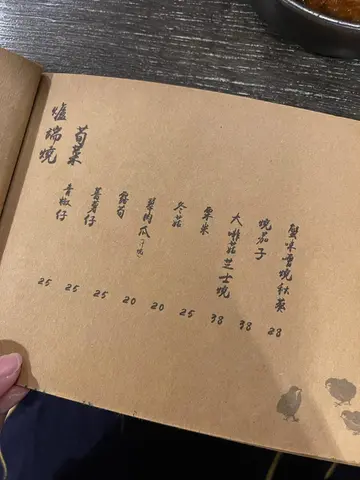 爐端燒
荀菜
青椒仔
仔
露荀
翠肉瓜
冬菇
粟米
大啡菇芝士燒
燒茄子
蟹味噌燒秋葵
25
25
25
20
20
25
38
38
28